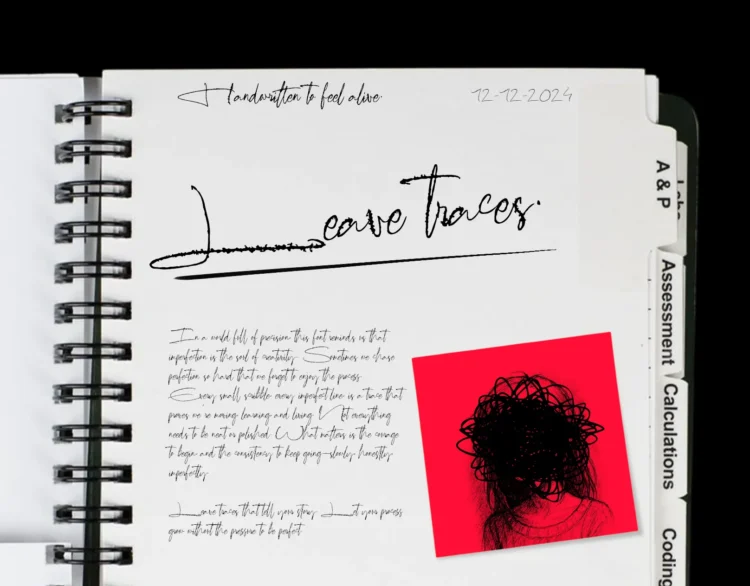 Handwritten to feel alive.
12-12-2024
Leave traces.
In a world full of precision this font reminds us that
imperfection is the soul of creativity. Sometimes we chase
perfection so hard that we forget to enjoy the process.
Every small scribble every imperfect line is a trace that
proves we're moving learning and living. Not everything
needs to be neat or polished. What matters is the courage
to begin and the consistency to keep going—slowly honestly
imperfectly.
Leave traces that tell your story. Let your process
grow without the pressure to be perfect.
A & P
Labs
Assessment
Calculations
Coding